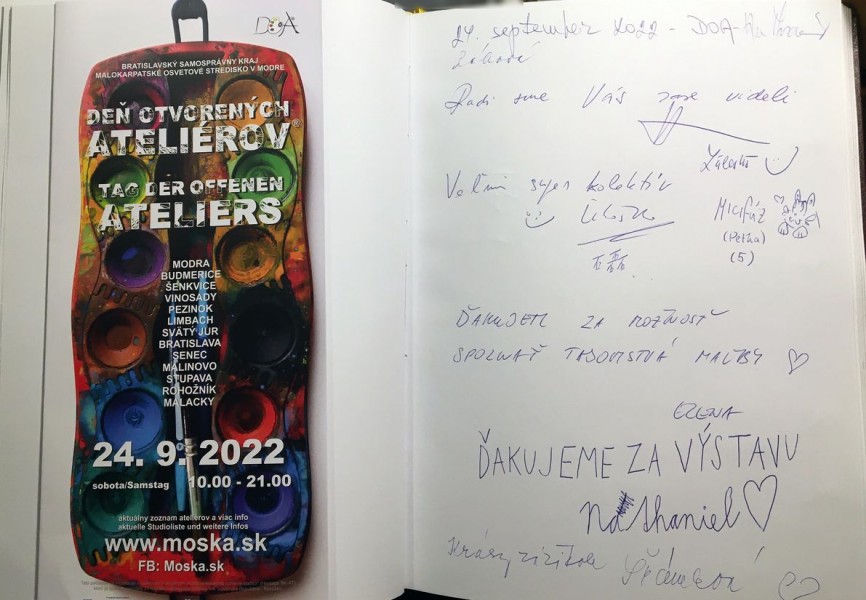 DOA
BRATISLAVSKÝ SAMOSPRÁVNY KRAJ
MALOKARPATSKÉ OSVETOVÉ STREDISKO V MODRE
DEŇ OTVORENÝCH
ATELIÉROV®
TAG DER OFFENEN
ATELIERS
MODRA
BUDMERICE
ŠENKVICE
VINOSADY
PEZINOK
LIMBACH
SVÄTÝ JUR
BRATISLAVA
SENEC
MALINOVO
STUPAVA
ROHOŽNÍK
MALACKY
24. 9. 2022
sobota/Samstag 10.00 - 21.00
aktuálny zoznam ateliérov a viac info
aktuelle Studioliste und weitere Infos
www.moska.sk
FB: Moska.sk
24. september 2022 - DOA-
Radi sme Vás zase videli
Veľmi super kolektív
MICIFÚZ
(Peťka)
(5)
ĎAKUJEM ZA MOŽNOSŤ
SPOZNAŤ TAJOMSTVÁ MAĽBY
ELENA
ĎAKUJEME ZA VÝSTAVU
Nathaniel